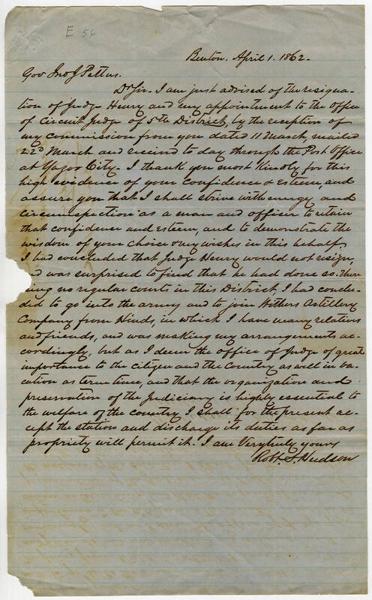 E 56
Benton, April 1. 1862.
Gov Jno J Pettus.
Dr Sir. I am just advised of the resigna-
tion of Judge Henry and my appointment to the office
of Circuit Judge of 5th District, by the reception of
my commission from you dated 11 March, mailed
22d March and received to day through the Post Office
at Yazoo City. I thank you most kindly for this
high evidence of your confidence & esteem, and
assure you that I shall strive with energy and
circumspection as a man and officer to retain
that confidence and esteem, and to demonstrate the
wisdom of your choice my wishes in this behalf
I had concluded that Judge Henry would not resign,
and was surprised to find that he had done so. There
being no regular courts in this District, I had conclu-
ded to go into the army and to join Artillery
Company from Hinds, in which I have many relations
and friends, and was making my arrangements ac-
cordingly, but as I deem the office of Judge of great
importance to the citizen and the Country as well in va-
cation as term time, and that the organization and
preservation of the Judiciary is highly essential to
the welfare of the country, I shall for the present ac-
cept the station and discharge its duties as far as
propriety will permit it. I am Very truly yours
Robt. S. Hudson